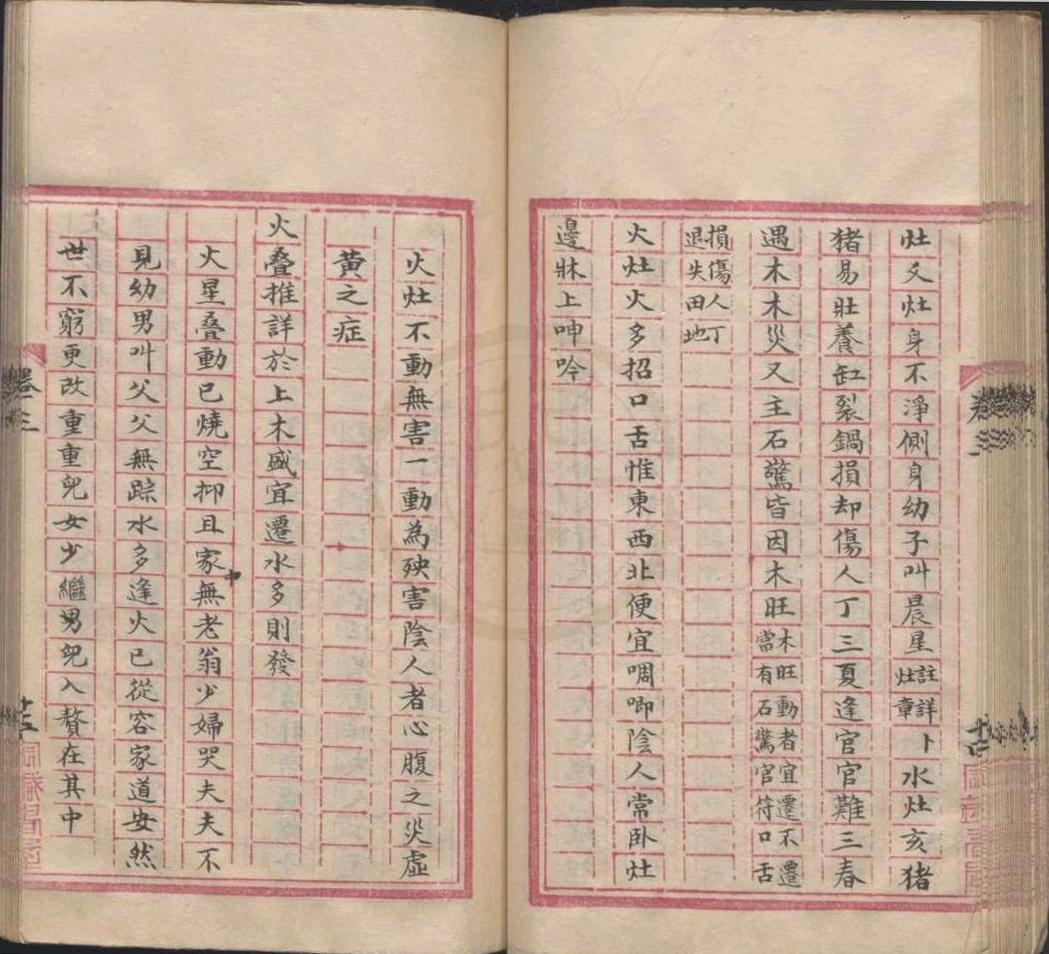 灶爻灶身不淨側身幼子叫晨星註詳灶章卜水灶亥猪
猪易壯養缸裂鍋損却傷人丁三夏逢官官難三春
遇木木災又主石驚皆因木旺木旺動者宜遷不遷當有石驚官符口舌
損傷人丁退失田地
火灶火多招口舌惟東西北便宜啁唧陰人常卧灶
邊牀上呻吟
火灶不動無害一動為殃害陰人者心腹之災虛
黃之症
火叠推詳於上木盛宜遷水多則發
火星叠動已燒空抑且家無老翁少婦哭夫夫不
見幼男叫父父無踪水多逢火已從容家道安然
世不窮更改重重兒女少繼男兒入贅在其中
卷三
十三